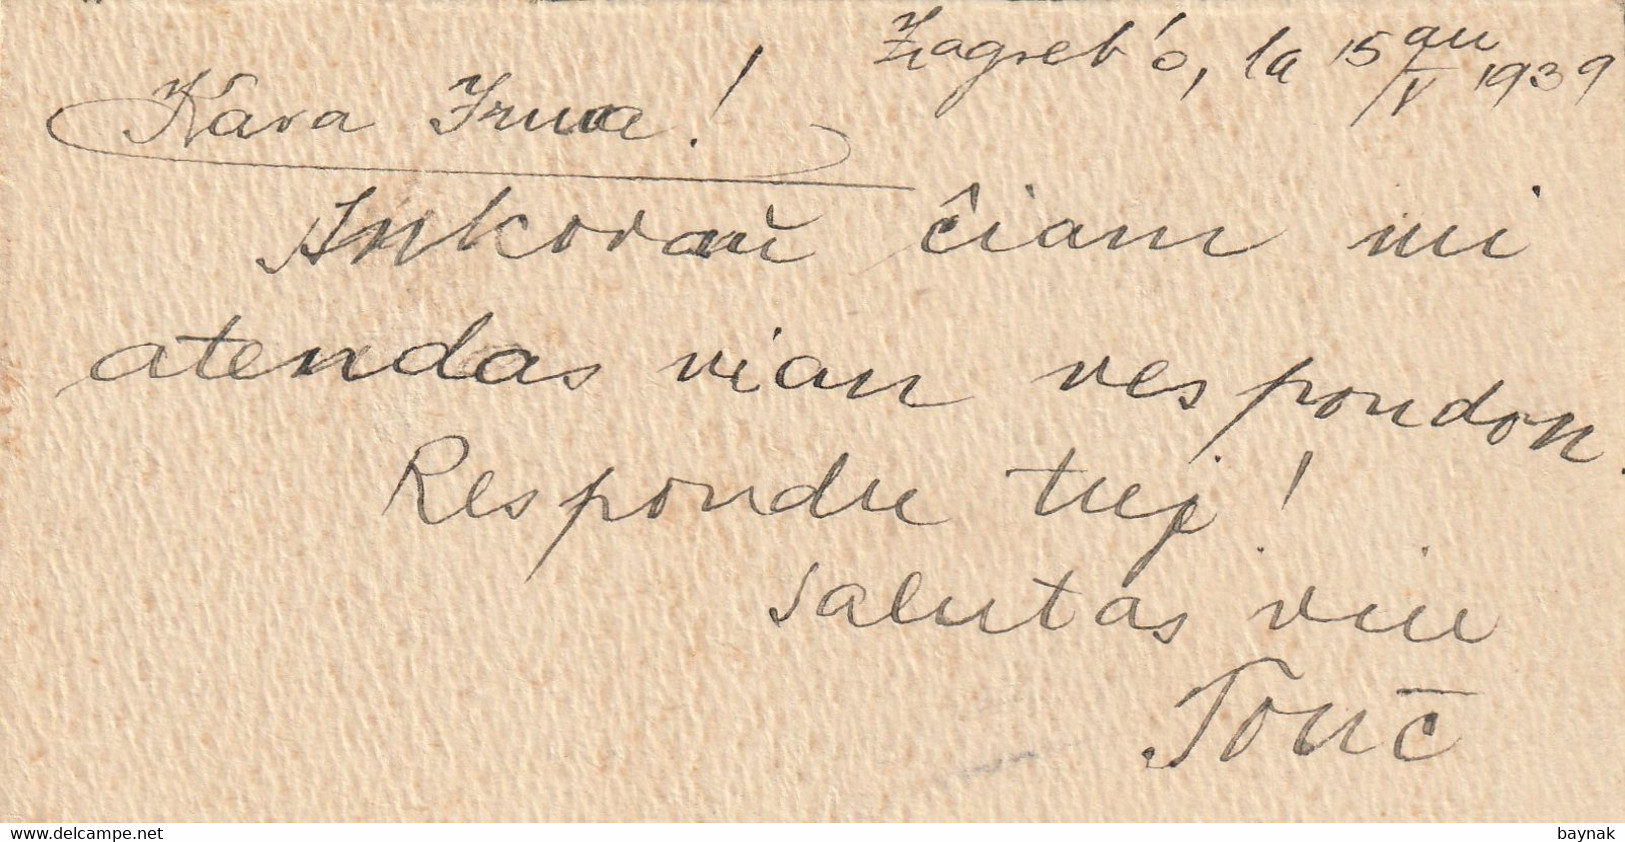 Zagreb'o, la 15an/V 1939
Kara !
Ankoraŭ ĉiam mi
atendas vian respondon.
Respondu tuj!
Salutas vin
Tonč
delcampe.net
baynak